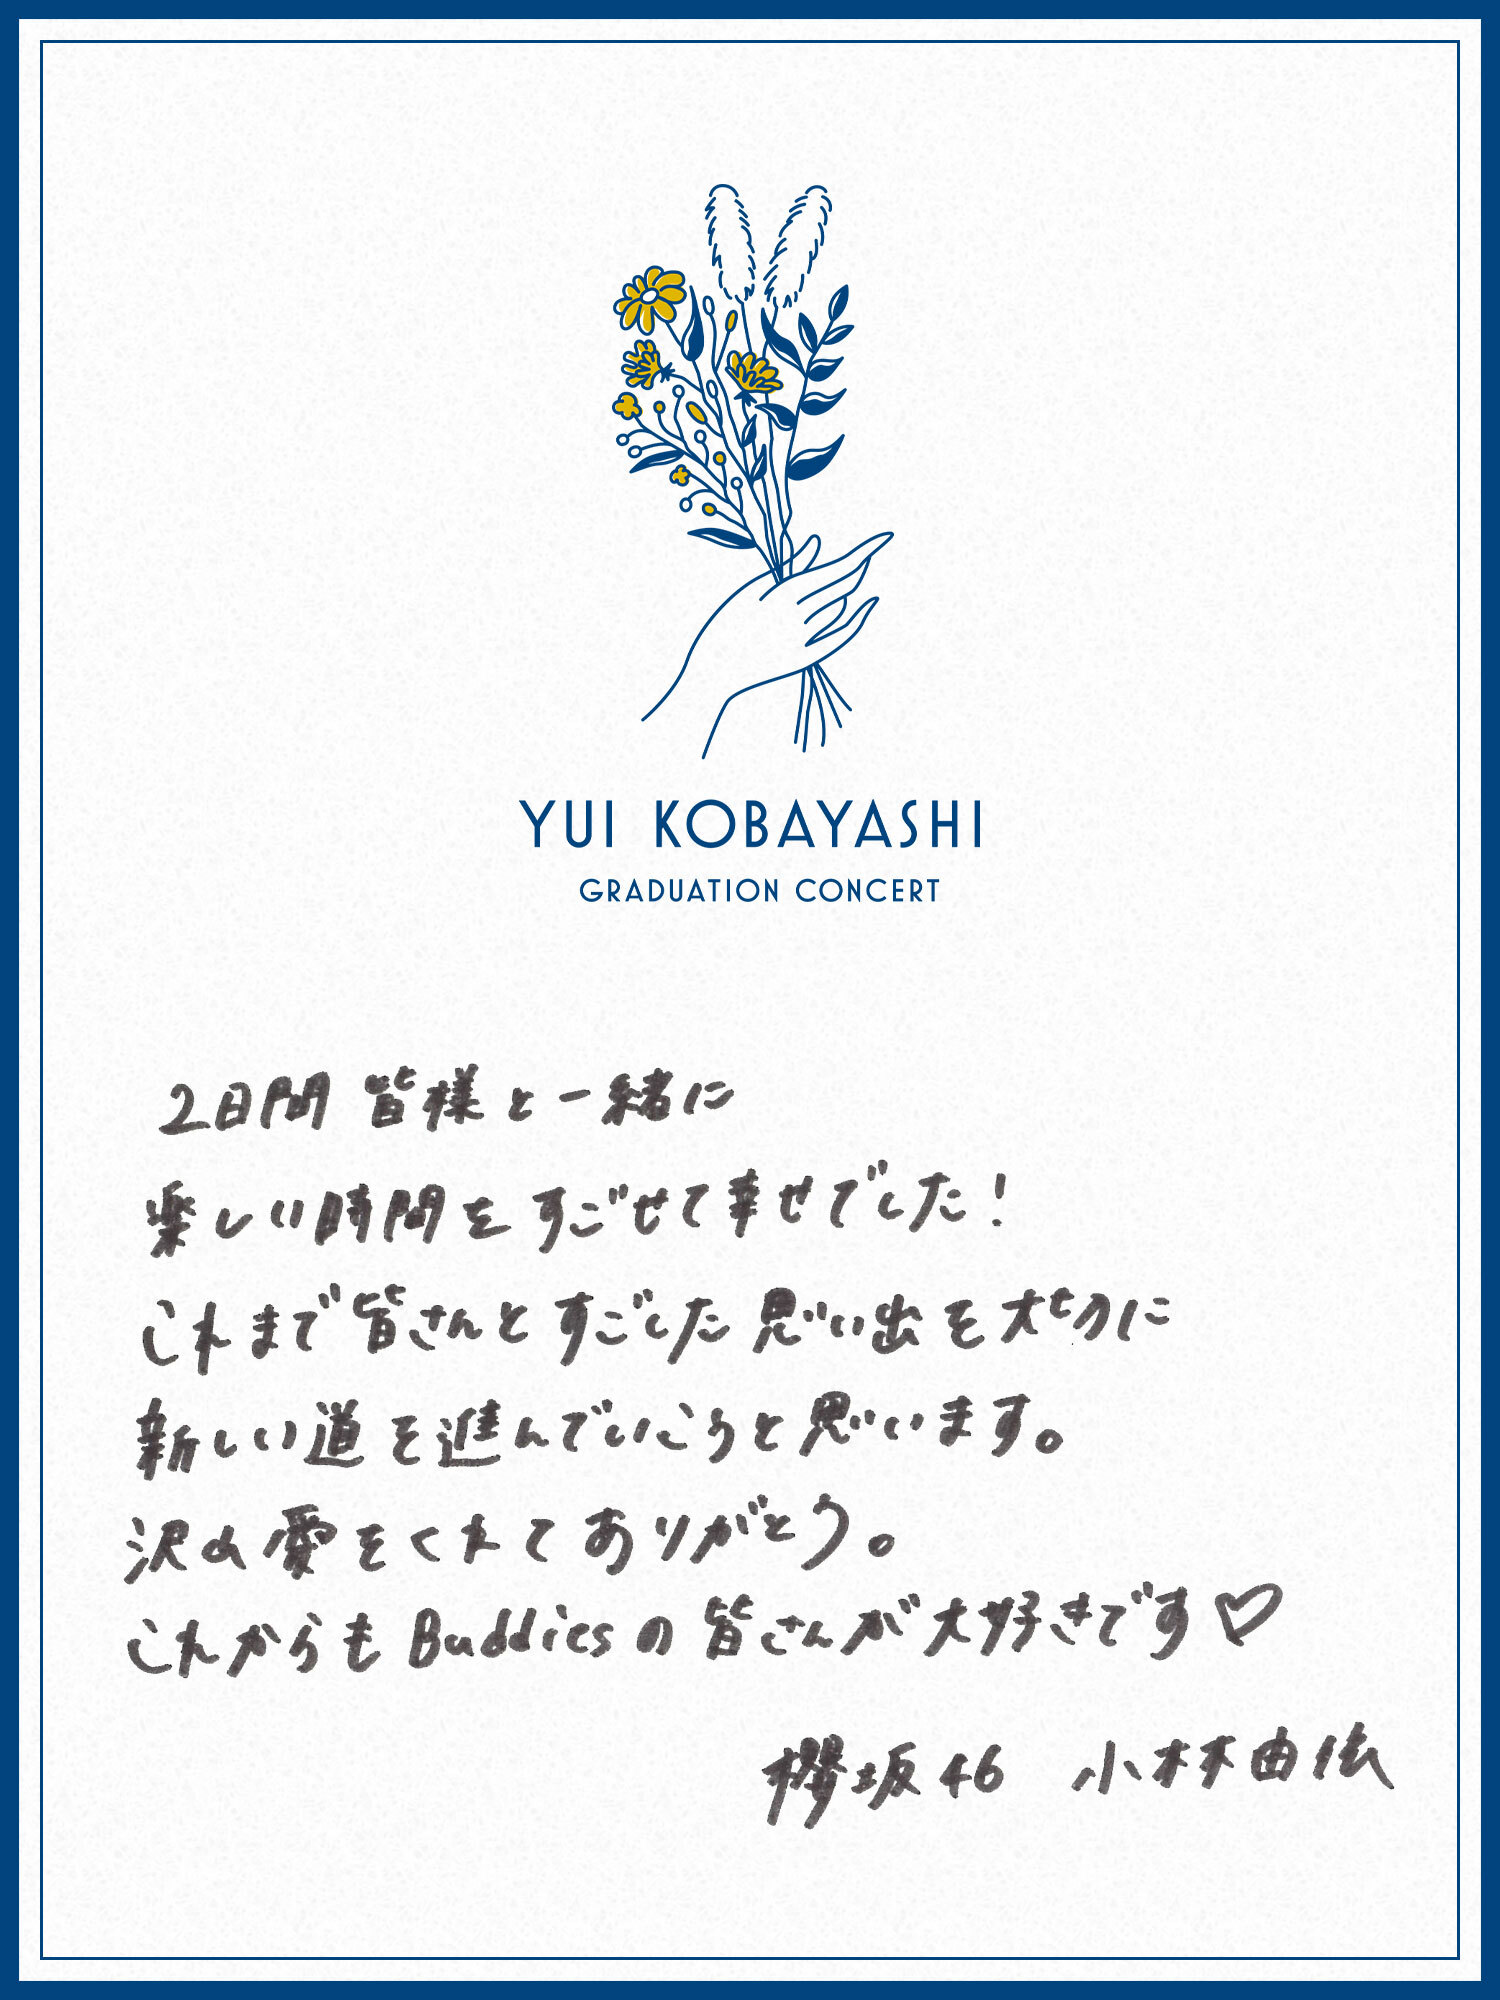 YUI KOBAYASHI
GRADUATION CONCERT
2日間 皆様と一緒に
楽しい時間をすごせて幸せでした！
これまで皆さんとすごした思い出を大切に
新しい道を進んでいこうと思います。
沢山愛をくれてありがとう。
これからもBuddiesの皆さんが大好きです♡
櫻坂46 小林由依